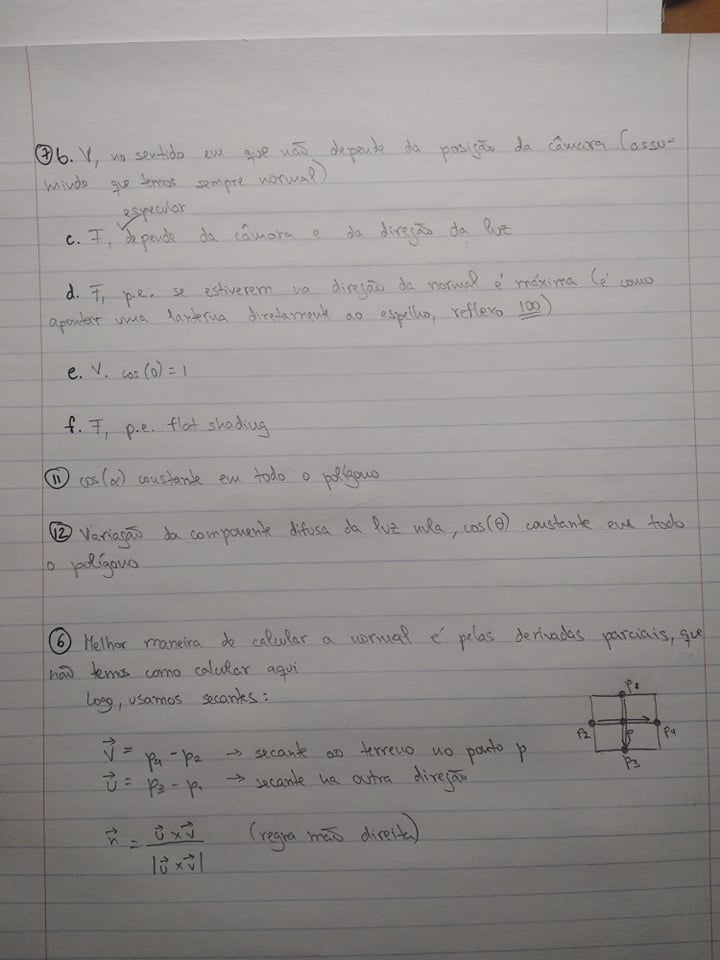 ⑦ b. V, no sentido em que não depende da posição da câmara (assu-
mindo que temos sempre normal)
especular
c. F, depende da câmara e da direção da luz
d. F, p.e. se estiverem na direção da normal é máxima (é como
apontar uma lanterna diretamente ao espelho, reflexo 100)
e. V. cos(0) = 1
f. F, p.e. flat shading
⑪ cos(α) constante em todo o polígono
⑫ Variação da componente difusa da luz nula, cos(θ) constante em todo
o polígono
⑥ Melhor maneira de calcular a normal é pelas derivadas parciais, que
não temos como calcular aqui
Logo, usamos secantes:
p1
p2 p p4
p3
v⃗ = p4 - p2 → secante ao terreno no ponto p
u⃗ = p3 - p1 → secante na outra direção
n⃗ = u⃗ × v⃗ (regra mão direita)
|u⃗ × v⃗|